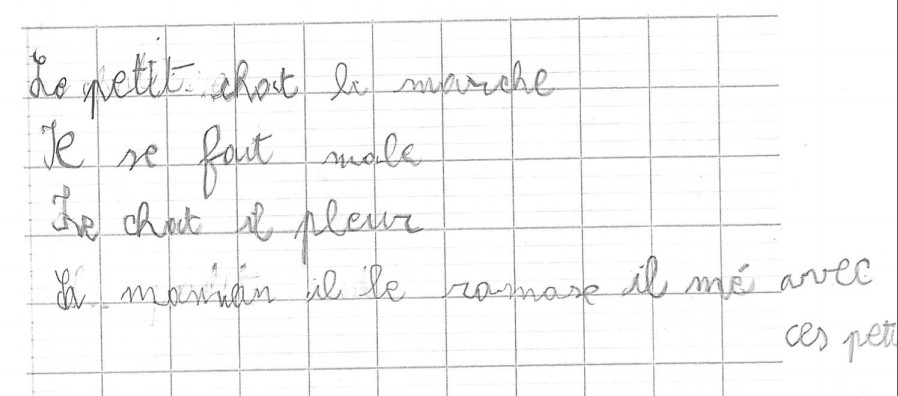 Le petit chat li marche
Il se fait male
Le chat il pleur
La maman il le ramase il mé avec
ces peti